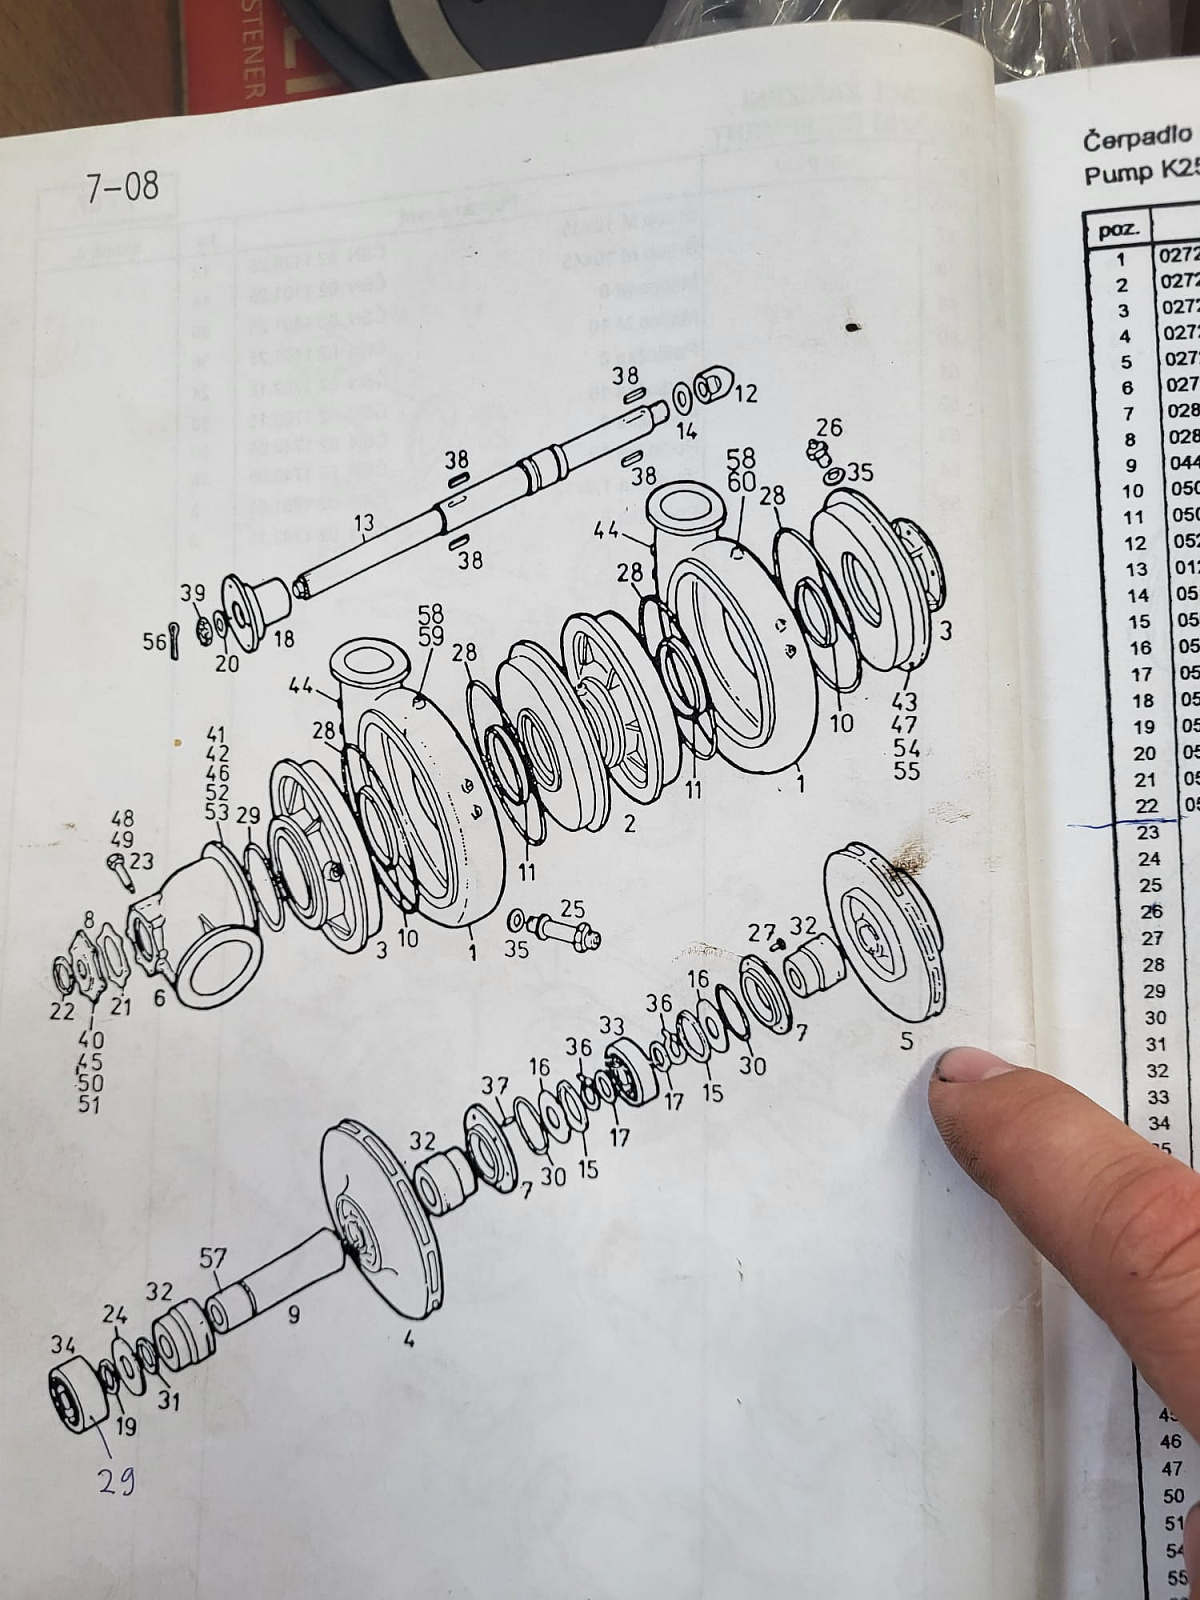 STENER
7-08
38
12
14
38
26
35
38
58
60
28
13
44
38
28
39
56
20
18
58
59
28
3
44
10
43
47
54
55
41
42
46
52
53
28
11
1
2
29
48
49
23
11
8
3
10
1
35
25
22
21
6
40
45
50
51
27
32
16
7
5
36
33
30
36
16
17
15
37
32
17
15
30
7
57
32
9
4
24
34
31
19
29
Čerpadlo
Pump K25
poz.
1 0272
2 0272
3 0272
4 0272
5 0272
6 027
7 028
8 028
9 044
10 050
11 050
12 052
13 012
14 05
15 05
16 05
17 05
18 05
19 05
20 05
21 05
22 05
23
24
25
26
27
28
29
30
31
32
33
34
45
46
47
50
51
54
55